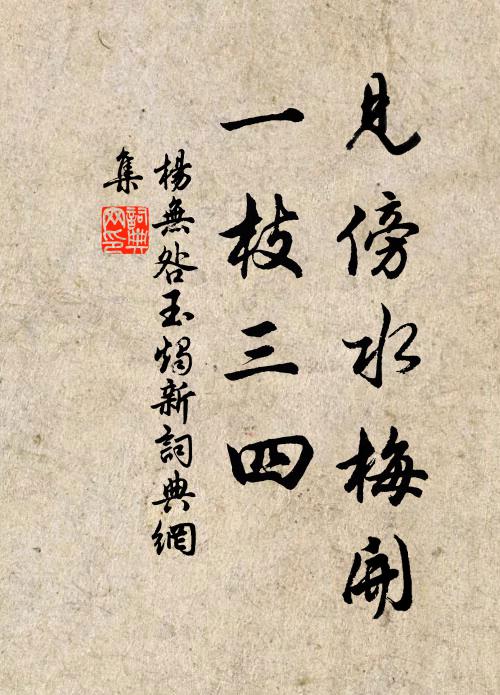 見傍水梅開
一枝三四
楊無咎玉燭新詞典網
集
詞典網印